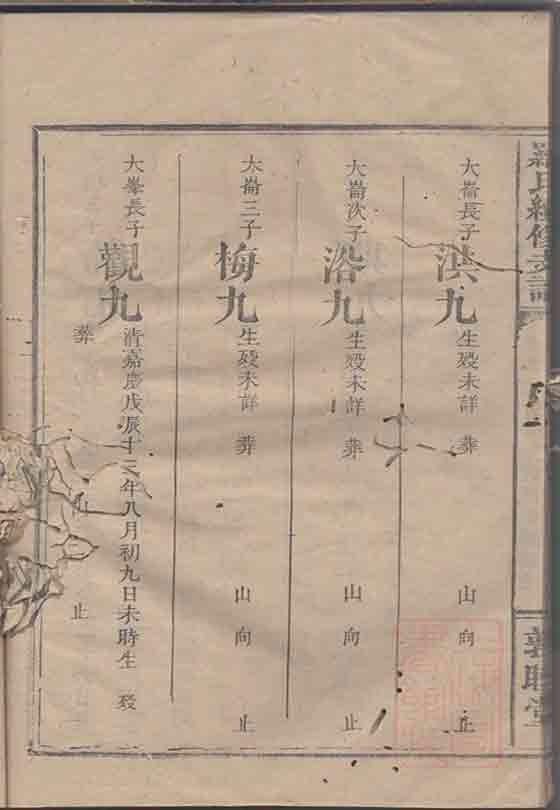 大崙長子
洪九
生歿未詳 葬 山向 止
大崙次子
浴九
生歿未詳 葬 山向 止
大崙三子
梅九
生歿未詳 葬 山向 止
大峯長子
觀九
清嘉慶戊辰十三年八月初九日未時生 歿
葬 山 止